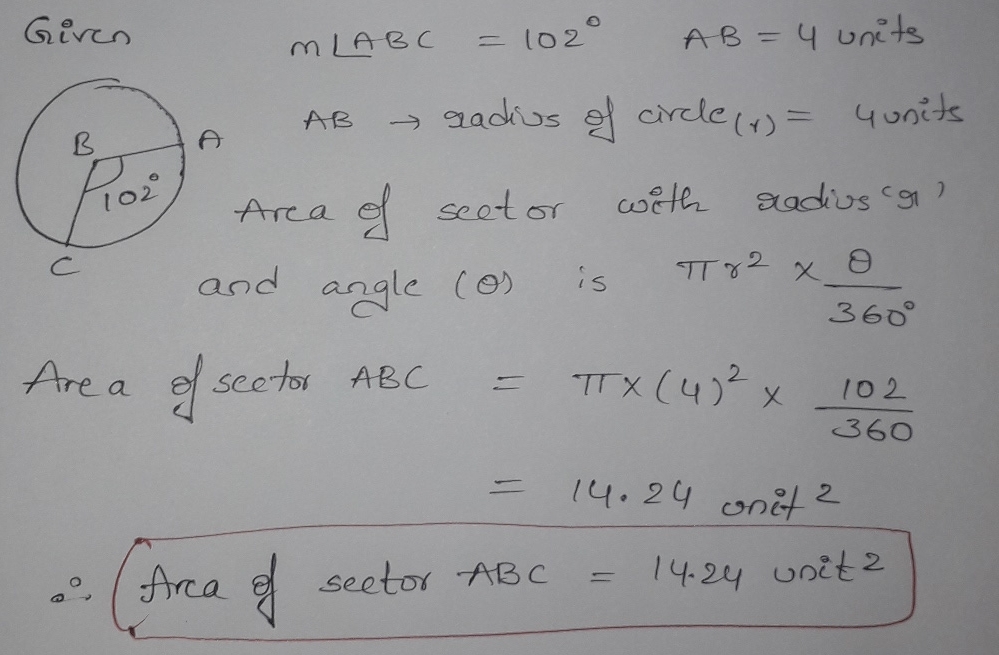 Given
m∠ABC = 102° AB = 4 units
AB → radius of circle (r) = 4 units
B A
102°
C
Area of sector with radius 'r'
and angle (θ) is πr² × θ/360°
Area of sector ABC = π×(4)² × 102/360
= 14.24 unit²
∴ Area of sector ABC = 14.24 unit²